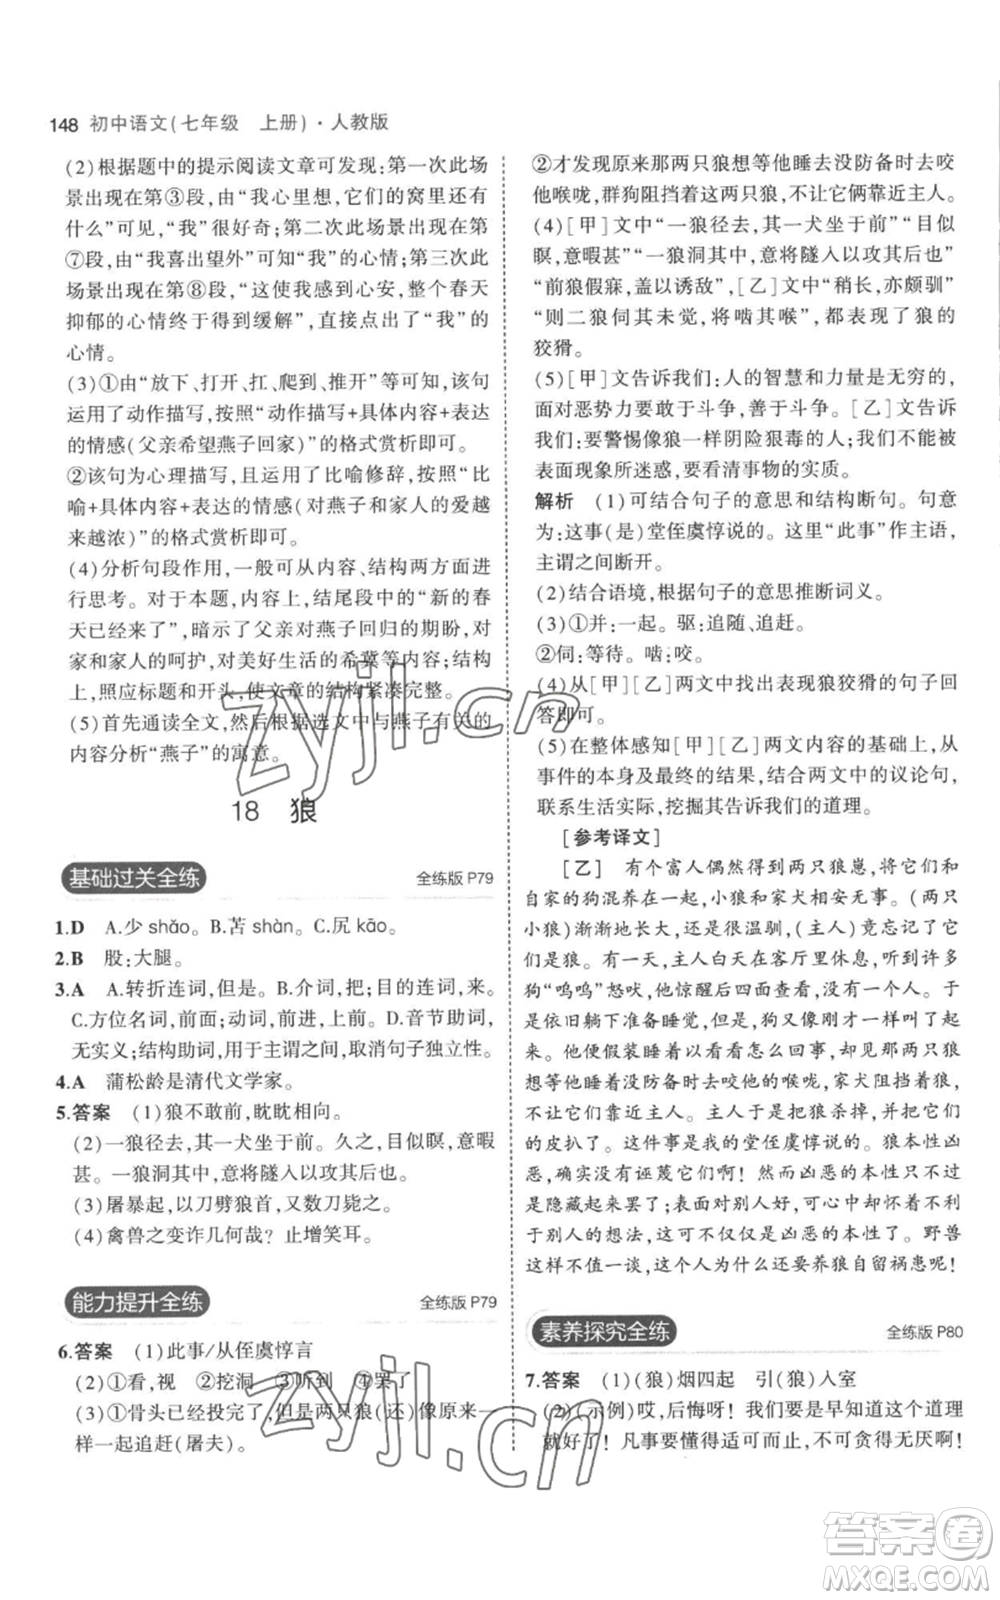 148 初中语文(七年级 上册)·人教版
(2)根据题中的提示阅读文章可发现:第一次此场
景出现在第③段,由“我心里想,它们的窝里还有
什么”可见,“我”很好奇;第二次此场景出现在第
⑦段,由“我喜出望外”可知“我”的心情;第三次此
场景出现在第⑧段,“这使我感到心安,整个春天
抑郁的心情终于得到缓解”,直接点出了“我”的
心情。
(3)①由“放下、打开、扛、爬到、推开”等可知,该句
运用了动作描写,按照“动作描写+具体内容+表达
的情感(父亲希望燕子回家)”的格式赏析即可。
②该句为心理描写,且运用了比喻修辞,按照“比
喻+具体内容+表达的情感(对燕子和家人的爱越
来越浓)”的格式赏析即可。
(4)分析句段作用,一般可从内容、结构两方面进
行思考。对于本题,内容上,结尾段中的“新的春
天已经来了”,暗示了父亲对燕子回归的期盼,对
家和家人的呵护,对美好生活的希冀等内容;结构
上,照应标题和开头,使文章的结构紧凑完整。
(5)首先通读全文,然后根据选文中与燕子有关的
内容分析“燕子”的寓意。
18 狼
基础过关全练 全练版 P79
1.D A.少 shǎo。B.苫 shàn。C.尻 kāo。
2.B 股:大腿。
3.A A.转折连词,但是。B.介词,把;目的连词,来。
C.方位名词,前面;动词,前进,上前。D.音节助词,
无实义;结构助词,用于主谓之间,取消句子独立性。
4.A 蒲松龄是清代文学家。
5.答案 (1)狼不敢前,眈眈相向。
(2)一狼径去,其一犬坐于前。久之,目似瞑,意暇
甚。一狼洞其中,意将隧入以攻其后也。
(3)屠暴起,以刀劈狼首,又数刀毙之。
(4)禽兽之变诈几何哉?止增笑耳。
能力提升全练 全练版 P79
6.答案 (1)此事/从侄虞惇言
(2)①看,视 ②挖洞 ③听到 ④罢了
(3)①骨头已经投完了,但是两只狼(还)像原来一
样一起追赶(屠夫)。
②才发现原来那两只狼想等他睡去没防备时去咬
他喉咙,群狗阻挡着这两只狼,不让它俩靠近主人。
(4)[甲]文中“一狼径去,其一犬坐于前”“目似
瞑,意暇甚”“一狼洞其中,意将隧入以攻其后也”
“前狼假寐,盖以诱敌”,[乙]文中“稍长,亦颇驯”
“则二狼伺其未觉,将啮其喉”,都表现了狼的
狡猾。
(5)[甲]文告诉我们:人的智慧和力量是无穷的,
面对恶势力要敢于斗争,善于斗争。[乙]文告诉
我们:要警惕像狼一样阴险狠毒的人;我们不能被
表面现象所迷惑,要看清事物的实质。
解析 (1)可结合句子的意思和结构断句。句意
为:这事(是)堂侄虞惇说的。这里“此事”作主语,
主谓之间断开。
(2)结合语境,根据句子的意思推断词义。
(3)①并:一起。驱:追随、追赶。
②伺:等待。啮:咬。
(4)从[甲][乙]两文中找出表现狼狡猾的句子回
答即可。
(5)在整体感知[甲][乙]两文内容的基础上,从
事件的本身及最终的结果,结合两文中的议论句,
联系生活实际,挖掘其告诉我们的道理。
[参考译文]
[乙] 有个富人偶然得到两只狼崽,将它们和
自家的狗混养在一起,小狼和狗相安无事。(两只
小狼)渐渐地长大,还是很温驯,(主人)竟然忘记了
它们是狼。有一天,主人白天在客厅里休息,听到许多
狗“呜呜”怒吠,他惊醒后四面查看,没有一个人。于
是依旧躺下准备睡觉,但是,狗又像刚才一样吼叫
起来。他便假装睡着以观察情况,发现那两只狼
想等他睡着没防备时去咬他的喉咙,家犬阻挡着狼,
不让它们靠近主人。主人就把狼杀掉,并剥了它们
的皮扒了。这件事是我的堂侄虞惇说的。狼本性凶
恶,确实没有诬蔑它们啊!然而凶恶的本性只不过
是隐藏起来罢了;表面对别人好,可心中却怀着不利
于别人的想法,这可不仅仅是凶恶的本性了。野兽
这样不值一谈,这个人为什么还要养狼自留祸患呢!
素养探究全练 全练版 P80
7.答案 (1)(狼)烟四起 引(狼)入室
(2)(示例)哎,后悔呀!我们要是早知道这个道理
就好了!凡事要懂得适可而止,不可贪得无厌啊!
zyjl.cn
zyjl.cn
答案圈
MXQE.COM